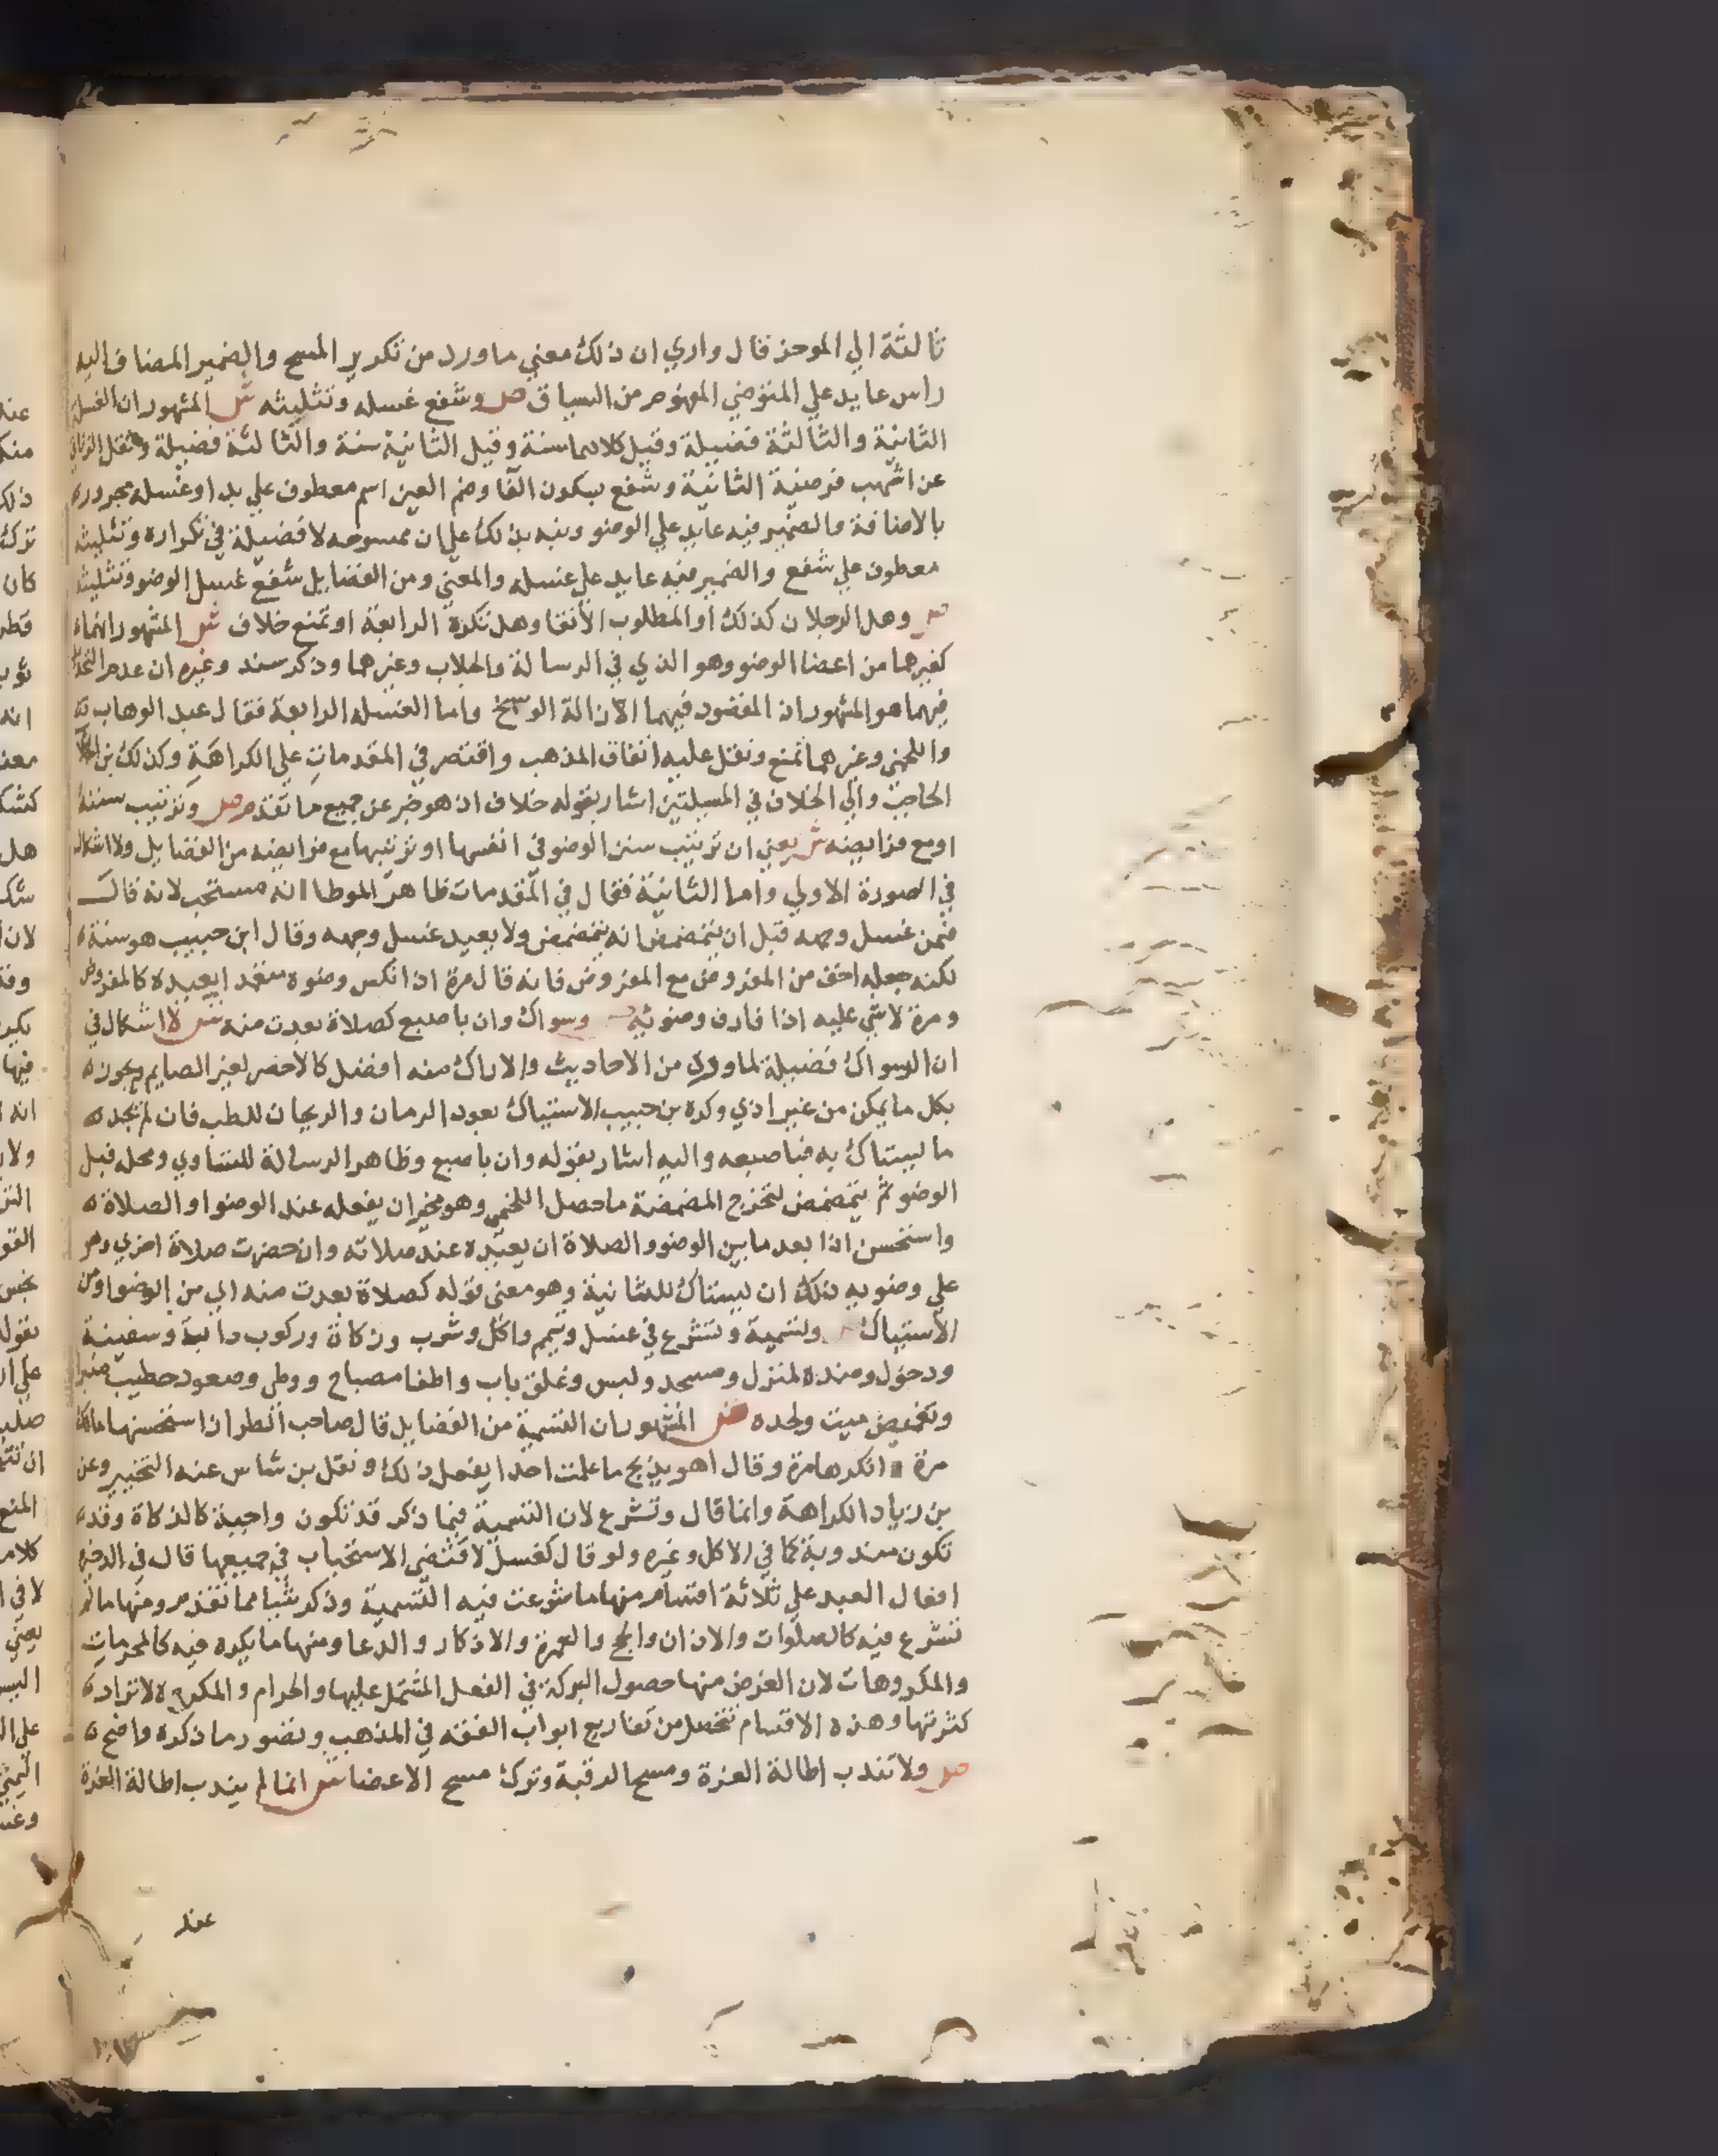 ثالثة الي الموخر قال واري ان ذلك معني ماورد من تكرير المسح والضمير المضاف اليه
راس عايد علي المتوضي المفهوم من السياق ص وشفع غسله وتثليثه ش المشهور ان الغسلة
الثانية والثالثة فضيلة وقيل كلاهما سنة وقيل الثانية سنة والثالثة فضيلة ونقل
عن اشهب فرضية الثانية وشفع بسكون الفا وضم العين اسم معطوف علي بدا وغسله مجرور
بالاضافة والضمير فيه عايد علي الوضو ونبه بذلك علي ان ممسوحه لا فضيلة في تكراره وتثليثه
معطوف علي شفع والضمير فيه عايد علي غسله والمعني ومن الفضايل شفع غسل الوضو وتثليثه
ص وهل الرجلان كذلك او المطلوب الانقا وهل تكره الرابعة او تمنع خلاف ش المشهور انهما
كغيرهما من اعضا الوضو وهو الذي في الرسالة والجلاب وغيرهما وذكر سند وغيره ان عدم التحديد
فيهما هو المشهور ان المقصود فيهما الازالة الوسخ واما الغسله الرابعة فقال عبد الوهاب
واللخمي وغيرهما تمنع ونقل عليه اتفاق المذهب واقتصر في المقدمات علي الكراهة وكذلك بن
الحاجب والي الخلاف في المسيلتين اشار بقوله خلاف اذ هو خبر عن جميع ما تقدم ص وترتيب سننه
او مع فرايضه ش يعني ان ترتيب سنن الوضو في انفسها او ترتيبها مع فرايضه من الفضايل ولا اشكال
في الصورة الاولي واما الثانية فقال في المقدمات ظاهر الموطا انه مستحب لانه قال
فيمن غسل وجهه قبل ان يتمضمض انه يتمضمض ولا يعيد غسل وجهه وقال ابن حبيب هو سنة
لكنه جعله اخف من المفروض مع المفروض فانه قال مرة اذا نكس وضوه متعمدا يعيده كالمفروض
ومرة لا شي عليه اذا فارق وضويه وسواك وان باصبع كصلاة بعدت منه ش لا اشكال في
ان السواك فضيلة لما ورد من الاحاديث والاراك منه افضل كالاخضر لغير الصايم ويجوز
بكل ما يمكن من غير اذي وكره بن حبيب الاستياك بعود الرمان والريحان للطب فان لم تجد
ما يستاك به فباصبعه واليه اشار بقوله وان باصبع وظاهر الرسالة للتساوي ومحله قبل
الوضو ثم يتمضمض لتخرج المضمضة ما حصل اللخمي وهو مخير ان يفعله عند الوضو او الصلاة
واستحسن اذا بعد ما بين الوضو والصلاة ان يعيده عند صلاته وان حضرت صلاة اخري وهو
علي وضويه ذلك ان يستاك للثانية وهو معني قوله كصلاة بعدت منه اي من الوضو او من
الاستياك وتسمية وتشرع في غسل وتيمم واكل وشرب وزكاة وركوب دابة وسفينة
ودخول وضده لمنزل ومسجد ولبس وغلق باب واطفا مصباح ووطي وصعود خطيب منبرا
وتغميض ميت ولحده ش المشهور ان التسمية من الفضايل قال صاحب الطراز استحسنها مالك
مرة وانكرها مرة وقال اهو يذبح ما علمت احدا يفعل ذلك ونقل بن شاس عنه التخيير وعن
بن زياد الكراهة وانما قال وتشرع لان التسمية فيما ذكر قد تكون واجبة كالذكاة وقد
تكون مندوبة كما في الاكل وغيره ولو قال كغسل لاقتضي الاستحباب في جميعها قال في الدخيرة
افعال العبد علي ثلاثة اقسام منها ما شرعت فيه التسمية وذكر شيا مما تقدم ومنها مالم
تشرع فيه كالصلوات والاذان والحج والعمرة والاذكار والدعا ومنها ما يكره فيه كالمحرمات
والمكروهات لان الغرض منها حصول البركة في الفعل المشتمل عليها والحرام والمكروه لا تراد
كثرتها وهذه الاقسام تتحصل من تفاريع ابواب الفقه في المذهب وتصور ما ذكره واضح
ص ولا تندب اطالة الغرة ومسح الرقبة وترك مسح الاعضا ش انما لم يندب اطالة الغرة
عند